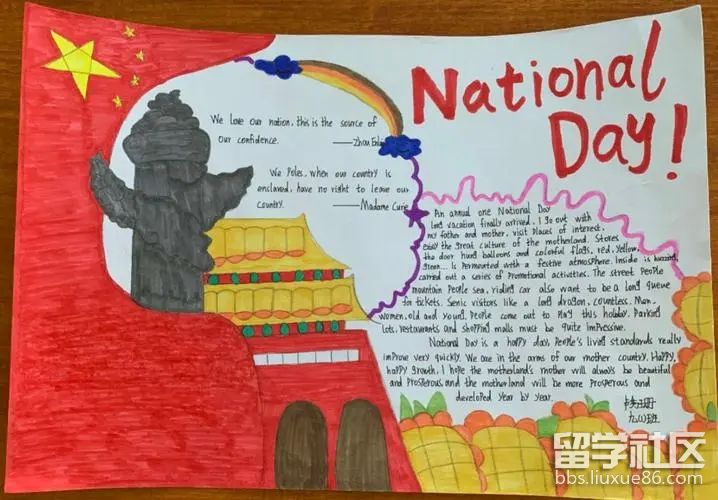 National
Day!
We love our nation, this is the source of
our confidence.
——Zhou Enlai
We Poles, when our country is
enslaved, have no right to leave our
country.
——Madame Curie
An annual one National Day
long vacation finally arrived. I go out with
my father and mother, visit places of interest,
enjoy the great culture of the motherland. Stores
the door hung balloons and colorful flags, red, yellow,
green... is permeated with a festive atmosphere. Inside is buzzing,
carried out a series of promotional activities. The street people
mountain people sea, riding car also want to be a long queue
for tickets. Senic visitors like a long dragon, countless. Man,
women, old and young, people come out to play this holiday. Parking
lots, restaurants and shopping malls must be quite impressive.
National Day is a happy day, people's living standards really
improve very quickly. We are in the arms of our mother country, Happy,
happy growth. I hope the motherland's mother will always be beautiful
and prosperous, and the motherland will be more prosperous and
developed year by year.
班
留学社区
bbs.liuxue86.com